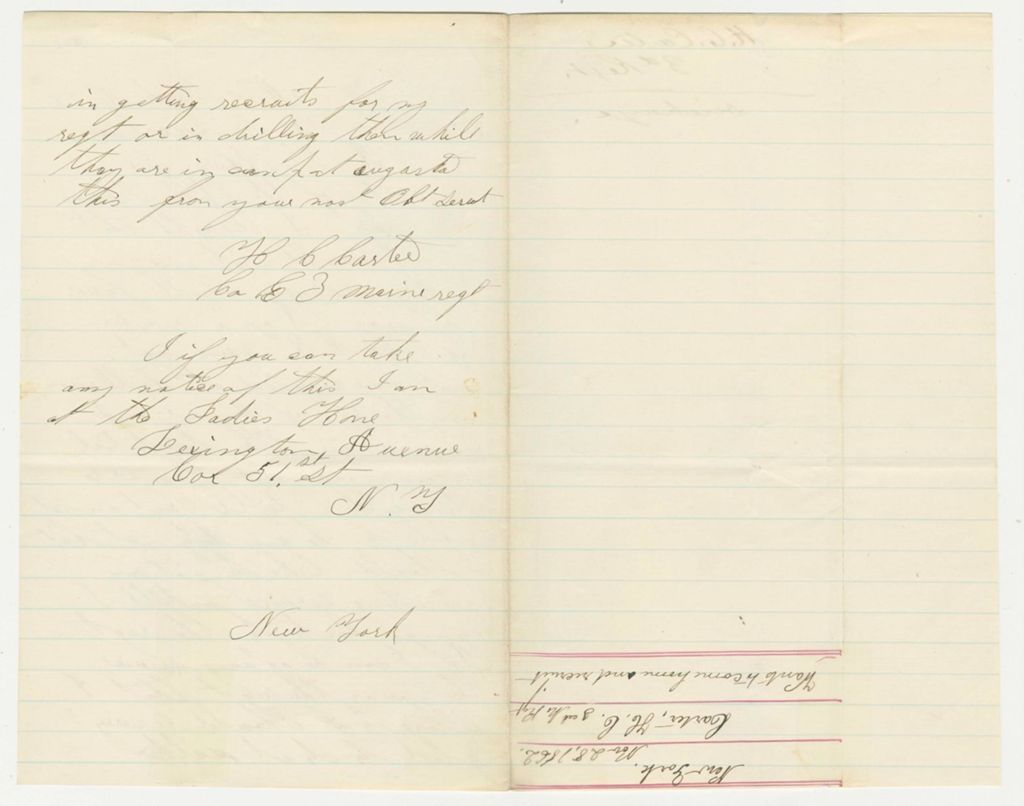 in getting recruits for my
regt or in drilling them while
they are in camp at augasta
this from your most Obt servt
H C Carter
Co E 3 maine regt
I if you can take
any notice of this I am
at the Ladies Home
Lexington, Avenue
Cor 51.st St
N. Y
New York
New York.
Nov 28, 1862.
Carter, H. C. 3rd Me Regt
Wants to come home and recruit